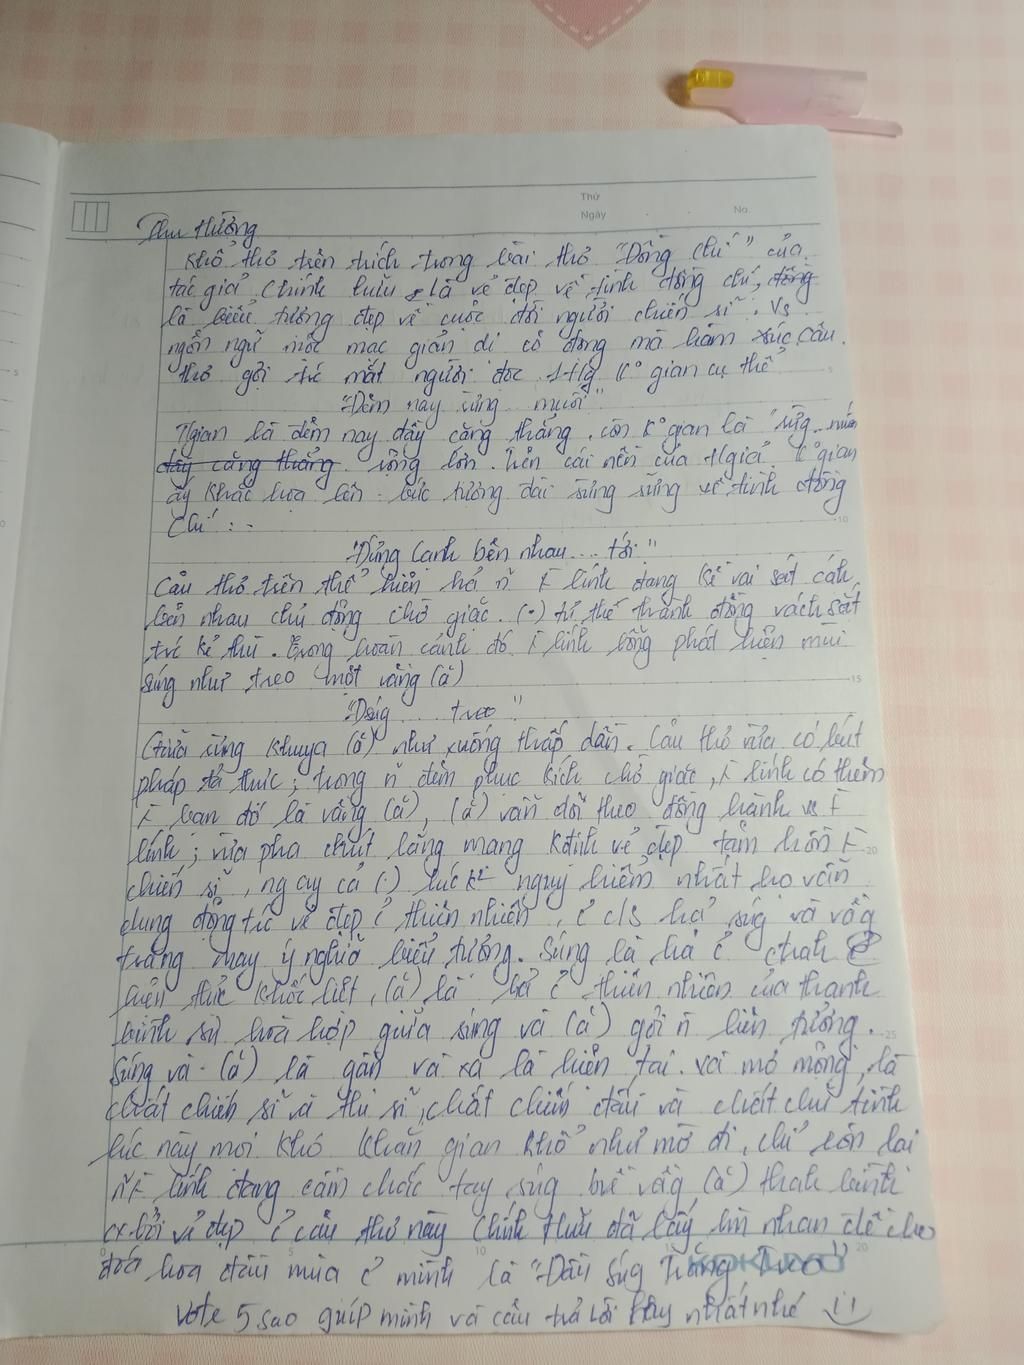 Thứ
Ngày
No.
Thu Hường
Khổ thơ trên trích trong bài thơ "Đồng Chí" của
tác giả Chính Hữu, là vẻ đẹp về tình đồng chí,
là biểu tượng đẹp về cuộc đời người chiến sĩ. Vs
ngôn ngữ mộc mạc giản dị cô đọng mà hàm xúc, câu
thơ gợi trc mắt người đọc 1 t/g k° gian cụ thể
"Đêm nay rừng... muối"
T/gian là đêm nay đầy căng thẳng, còn k° gian là "rừg...
đầy căng thẳng rộng lớn. Trên cái nền của t/gian, k° gian
ấy khắc hoạ lên bức tượng đài sừng sững về tình đồng
chí : -
"Đứng cạnh bên nhau.... tới"
Câu thơ trên thể hiện h/a n~ lính đang kề vai sát cánh
bên nhau chủ động chờ giặc. (.) tư thế thành đồng vách sắt
trc kẻ thù. Trong hoàn cảnh đó lính bỗng phát hiện mũi
súng như treo một vầng (á)
"Đ... súg .... treo"
Giữa rừng khuya (á) như xuống thấp dần. Câu thơ vừa có bút
pháp tả thực; trong n~ đêm phục kích chờ giặc, lính có thêm
bạn đó là vầng (á), (á) vẫn dõi theo đồng hành vs
lính; vừa pha chút lãng mạng k đinh vẻ đẹp tâm hồn
chiến sĩ, ngay cả (.) lúc k² nguy hiểm nhất họ vẫn
dung động trc vẻ đẹp ở thiên nhiên, h/a súg và vầg
trăng may ý nghĩa biểu tượng. Súng là h/a ở ctranh
hiện thực khốc liệt, (á) là h/a ở thiên nhiên của thanh
bình sự hoà hợp giữa súng và (á) gợi n~ liên tưởng.
Súng và (á) là gần và xa là hiện tại và mơ mộng, là
chất chiến sĩ và thi sĩ, chất chiến đấu và chất chữ tình
lúc này mọi khó khăn gian khổ như mờ đi, chỉ còn lại
n~ lính đang cầm chắc tay súg bvệ vầg (á) thah bình
bởi vẻ đẹp ở câu thơ này Chính Hữu đã lấy làm nhan đề cho
hoa đầu mùa ở mình là "Đầu súg trăng treo"
KOKUYO
Vote 5 sao giúp mình và câu trả lời hay nhất nhé